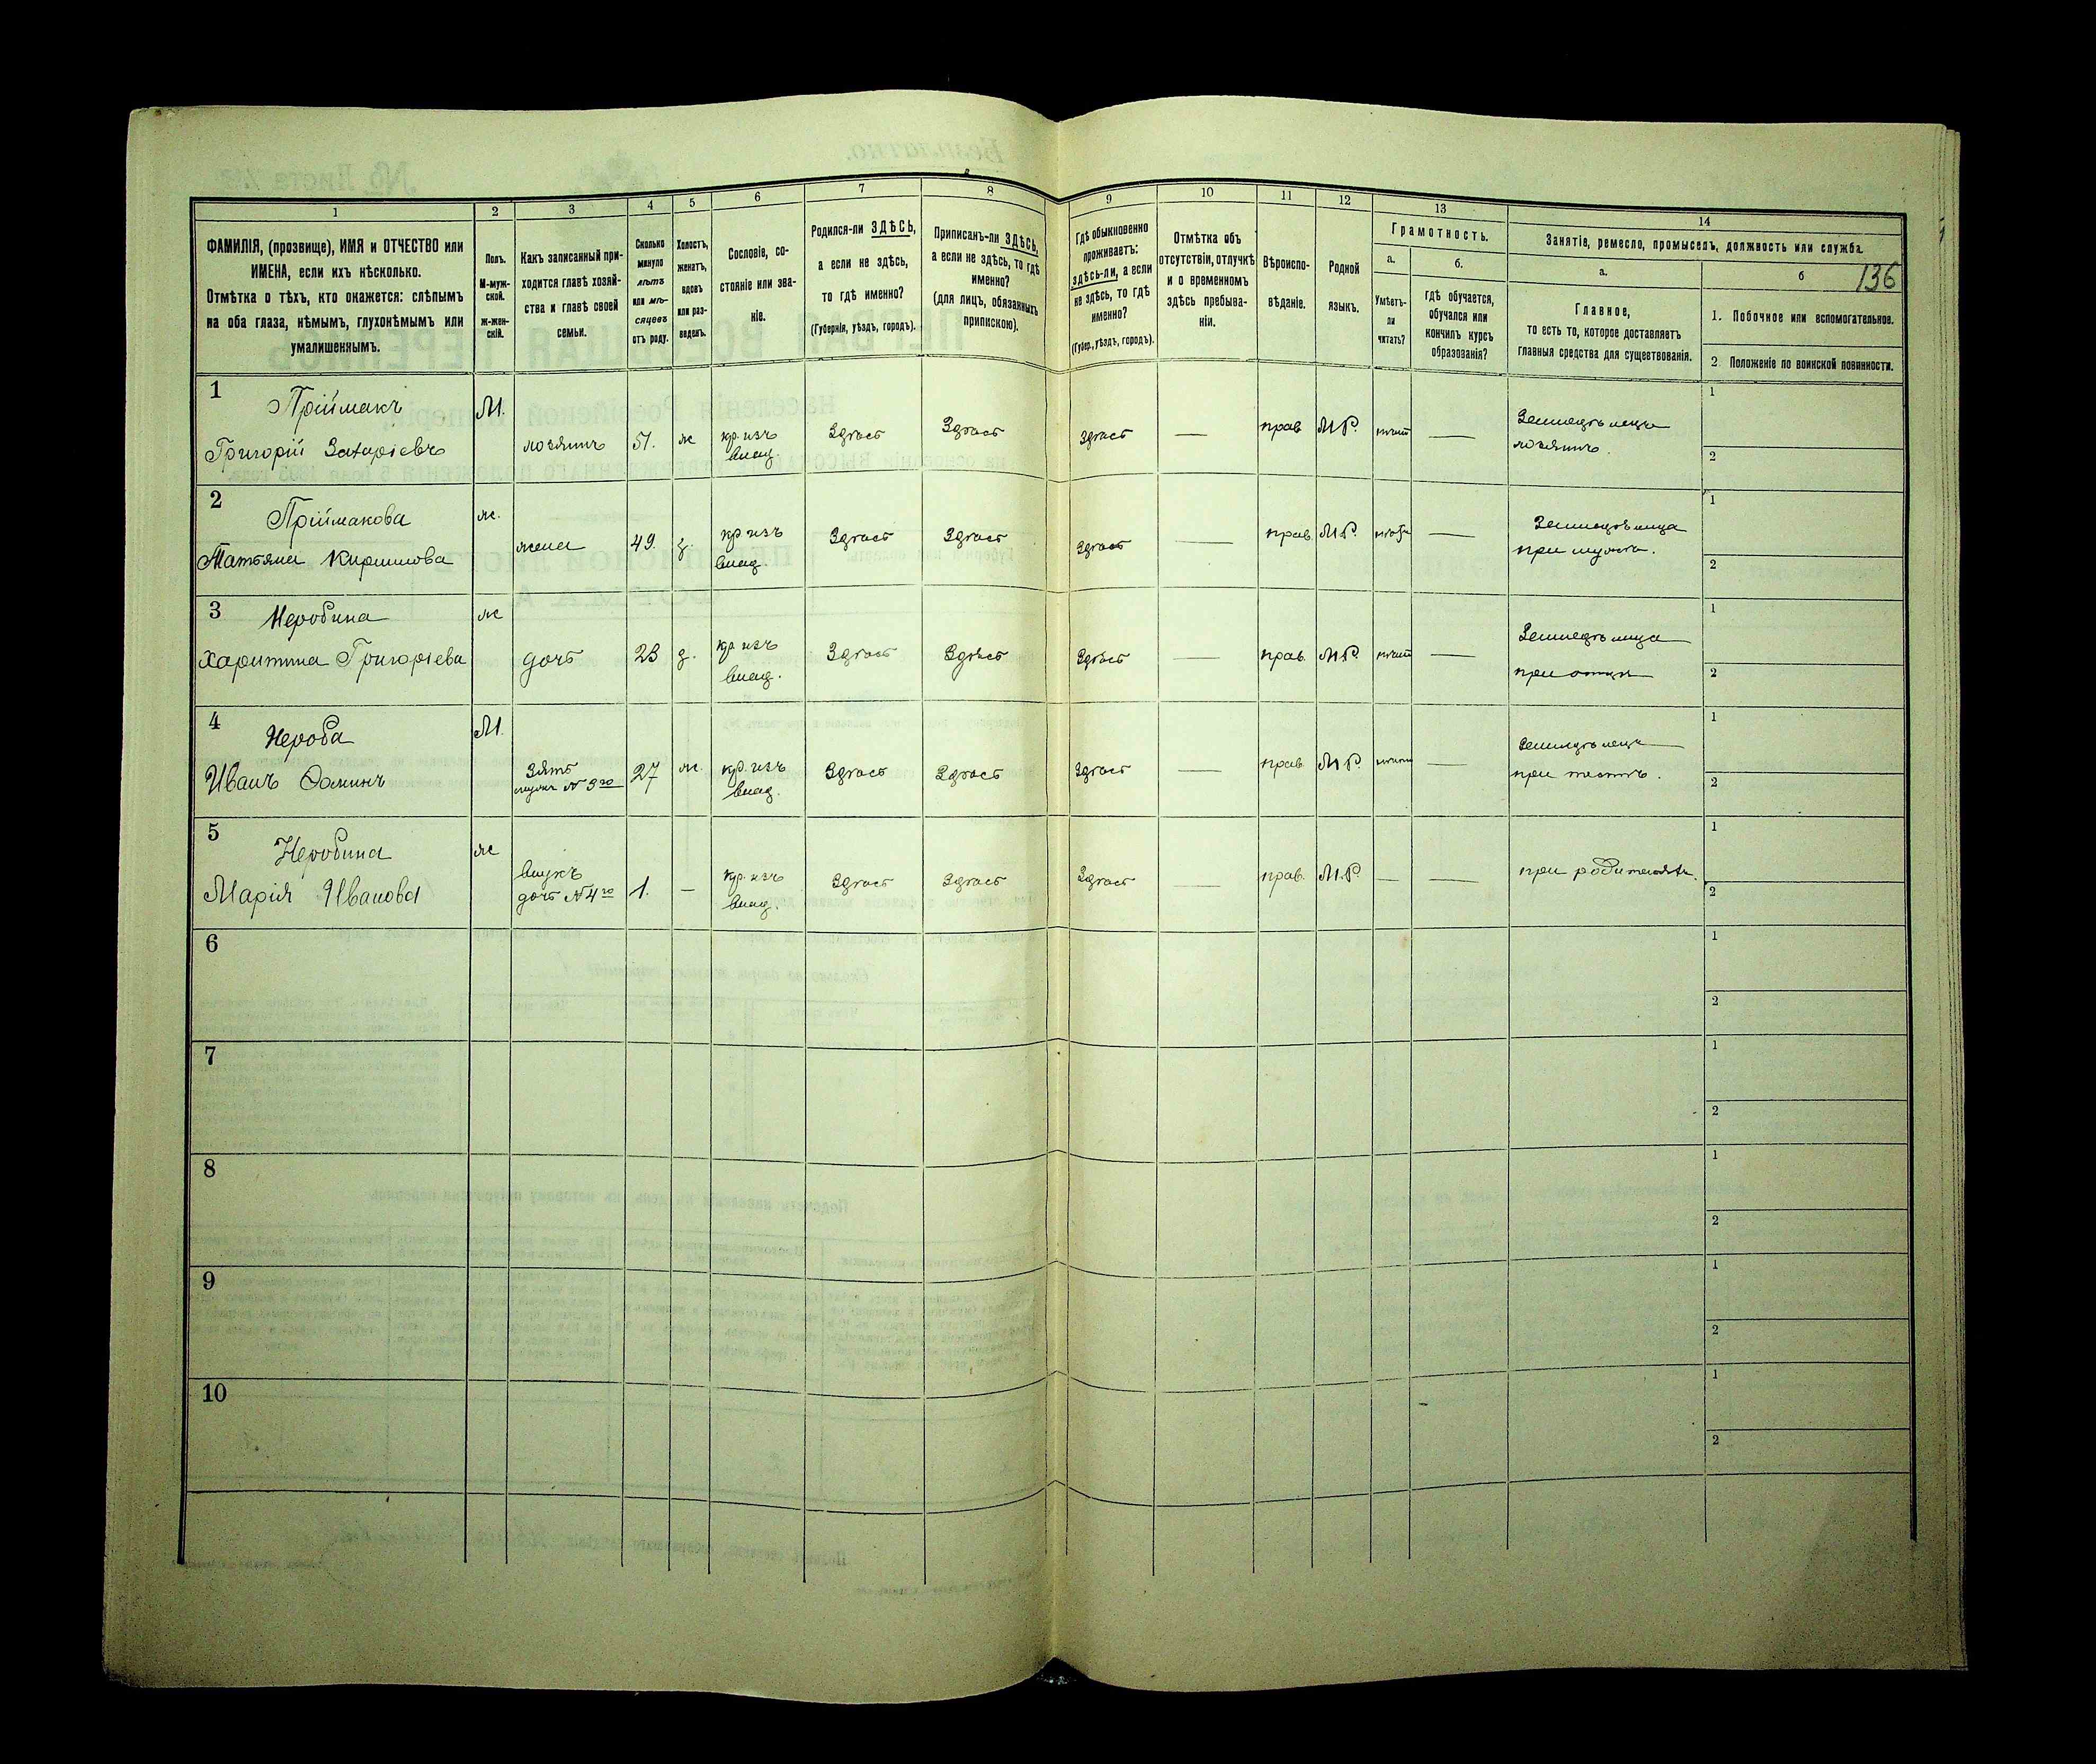 1
2
3
4
5
6
7
8
9
10
11
12
13
14
136
ФАМИЛІЯ, (прозвище), ИМЯ и ОТЧЕСТВО или
ИМЕНА, если ихъ нѣсколько.
Отмѣтка о тѣхъ, кто окажется: слѣпымъ
на оба глаза, нѣмымъ, глухонѣмымъ или
умалишеннымъ.
Полъ.
М-муж-
ской.
ж-жен-
скій.
Какъ записанный при-
ходится главѣ хозяй-
ства и главѣ своей
семьи.
Сколько
минуло
лѣтъ
или мѣ-
сяцевъ
отъ роду.
Холостъ,
женатъ,
вдовъ
или раз-
веденъ.
Сословіе, со-
стояніе или зва-
ніе.
Родился-ли ЗДѢСЬ,
а если не здѣсь,
то гдѣ именно?
(Губернія, уѣздъ, городъ).
Приписанъ-ли ЗДѢСЬ,
а если не здѣсь, то гдѣ
именно?
(для лицъ, обязанныхъ
припискою).
Гдѣ обыкновенно
проживаетъ:
здѣсь-ли, а если
не здѣсь, то гдѣ
именно?
(Губер., уѣздъ, городъ).
Отмѣтка объ
отсутствіи, отлучкѣ
и о временномъ
здѣсь пребыва-
ніи.
Вѣроиспо-
вѣданіе.
Родной
языкъ.
Грамотность.
а.
Умѣетъ-
ли
читать?
б.
гдѣ обучается,
обучался или
кончилъ курсъ
образованія?
Занятіе, ремесло, промыселъ, должность или служба.
а.
Главное,
то есть то, которое доставляетъ
главныя средства для существованія.
б
1. Побочное или вспомогательное.
2 Положеніе по воинской повинности.
1
Пріймакъ
Григорій Захаріевъ
М.
хозяинъ
51.
ж
кр. изъ
влад.
Здѣсь
Здѣсь
Здѣсь
—
прав
М.Р.
—
Земледѣлецъ
хозяинъ.
1
2
2
Пріймакова
Татьяна Кирилова
ж.
жена
49.
з.
кр изъ
влад.
Здѣсь
Здѣсь
Здѣсь
—
прав.
М.Р.
—
Земледѣлица
при мужѣ.
1
2
3
Неробина
Харитина Григоріева
ж
дочь
23
з.
кр изъ
влад.
Здѣсь
Здѣсь
Здѣсь
—
прав.
М.Р.
—
Земледѣлица
при отцѣ
1
2
4
Нероба
Иванъ
М.
Зять
мужъ № 3го
27
ж.
кр. изъ
влад.
Здѣсь
Здѣсь
Здѣсь
—
прав.
М.Р.
—
Земледѣлецъ
при тестѣ.
1
2
5
Неробина
Марія Иванова
ж
дочь №4го
1.
—
кр. изъ
влад.
Здѣсь
Здѣсь
Здѣсь
—
прав.
М.Р.
—
—
при родителяхъ.
1
2
6
1
2
7
1
2
8
1
2
9
1
2
10
1
2